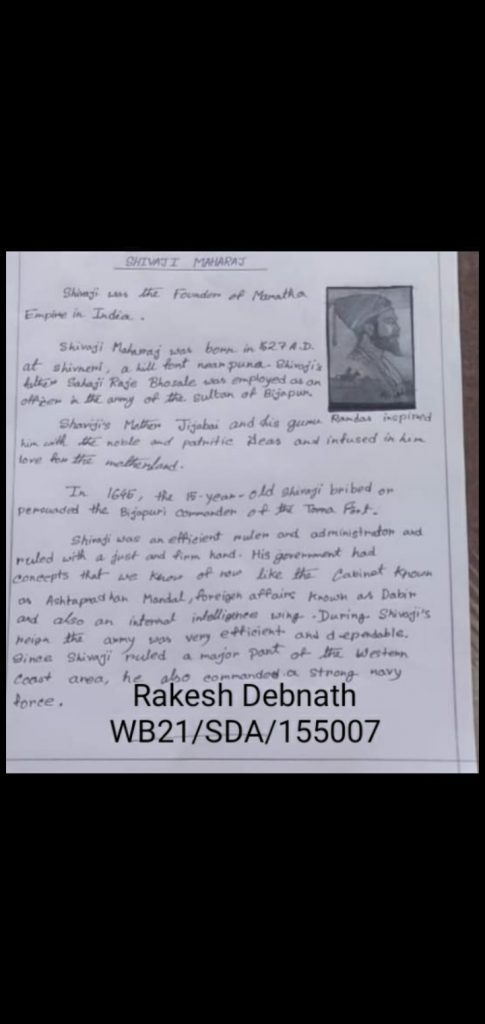 SHIVAJI MAHARAJ
Shivaji was the Founder of Maratha
Empire in India.
Shivaji Maharaj was born in 1627 A.D.
at shivneri, a hill font near puna. Shivaji's
father Sahaji Raje Bhosale was employed as an
officer in the army of the sultan of Bijapur.
Shaviji's Mother Jijabai and his guru Ramdas inspired
him with the noble and patritic ideas and infused in him
love for the motherland.
In 1645, the 15-year-old Shivaji bribed or
persuaded the Bijapuri commander of the Torna Fort.
Shivaji was an efficient ruler and administrator and
ruled with a just and firm hand. His government had
concepts that we know of now like the Cabinet known
as Ashtapradhan Mandal, foreigen affairs known as Dabir
and also an internal intelligence wing. During Shivaji's
reign the army was very efficient and dependable.
Since Shivaji ruled a major part of the Western
Coast area, he also commanded a strong navy
force.
Rakesh Debnath
WB21/SDA/155007